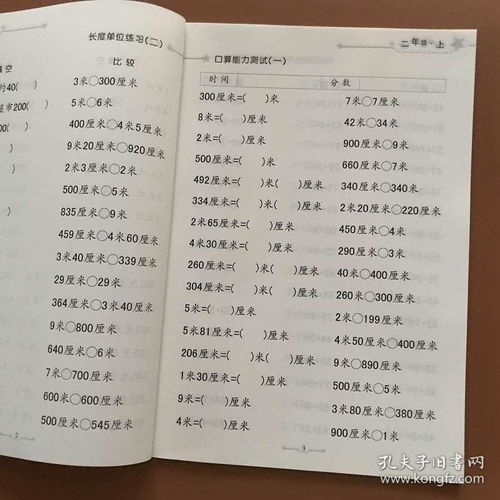 长度单位练习(二)
空
比较
的40(
3米○300厘米
超市200(
5米○6米
00(
400厘米○4米5厘米
9米20厘米○920厘米
2米3厘米○2米
500厘米○5米
835厘米○9米
459厘米○4米60厘米
3米40厘米○339厘米
29厘米○29米
364厘米○3米40厘米
9米○800厘米
640厘米○6米
7米○700厘米
600米○600厘米
500厘米○545厘米
2
二年级·上
口算能力测试(一)
时间
分数
300厘米=( )米
7米○7厘米
8米=( )厘米
42米○34米
2米=( )厘米
900厘米○9米
500厘米=( )米
660厘米○7米
492厘米=( )米( )厘米
340厘米○340米
334厘米=( )米( )厘米
2米20厘米○220厘米
2米65厘米=( )厘米
450厘米○4米
4米30厘米=( )厘米
290厘米○3米
260厘米=( )米( )厘米
40米○400厘米
304厘米=( )米( )厘米
260米○300厘米
5米=( )厘米
2米○199厘米
5米81厘米=( )厘米
4米50厘米○400厘米
206厘米=( )米( )厘米
9米○890厘米
1米30厘米=( )厘米
500厘米○5米
9米=( )厘米
3米80厘米○380厘米
4米=( )厘米
900厘米○1米
3
孔夫子旧书网
www.kongfz.com